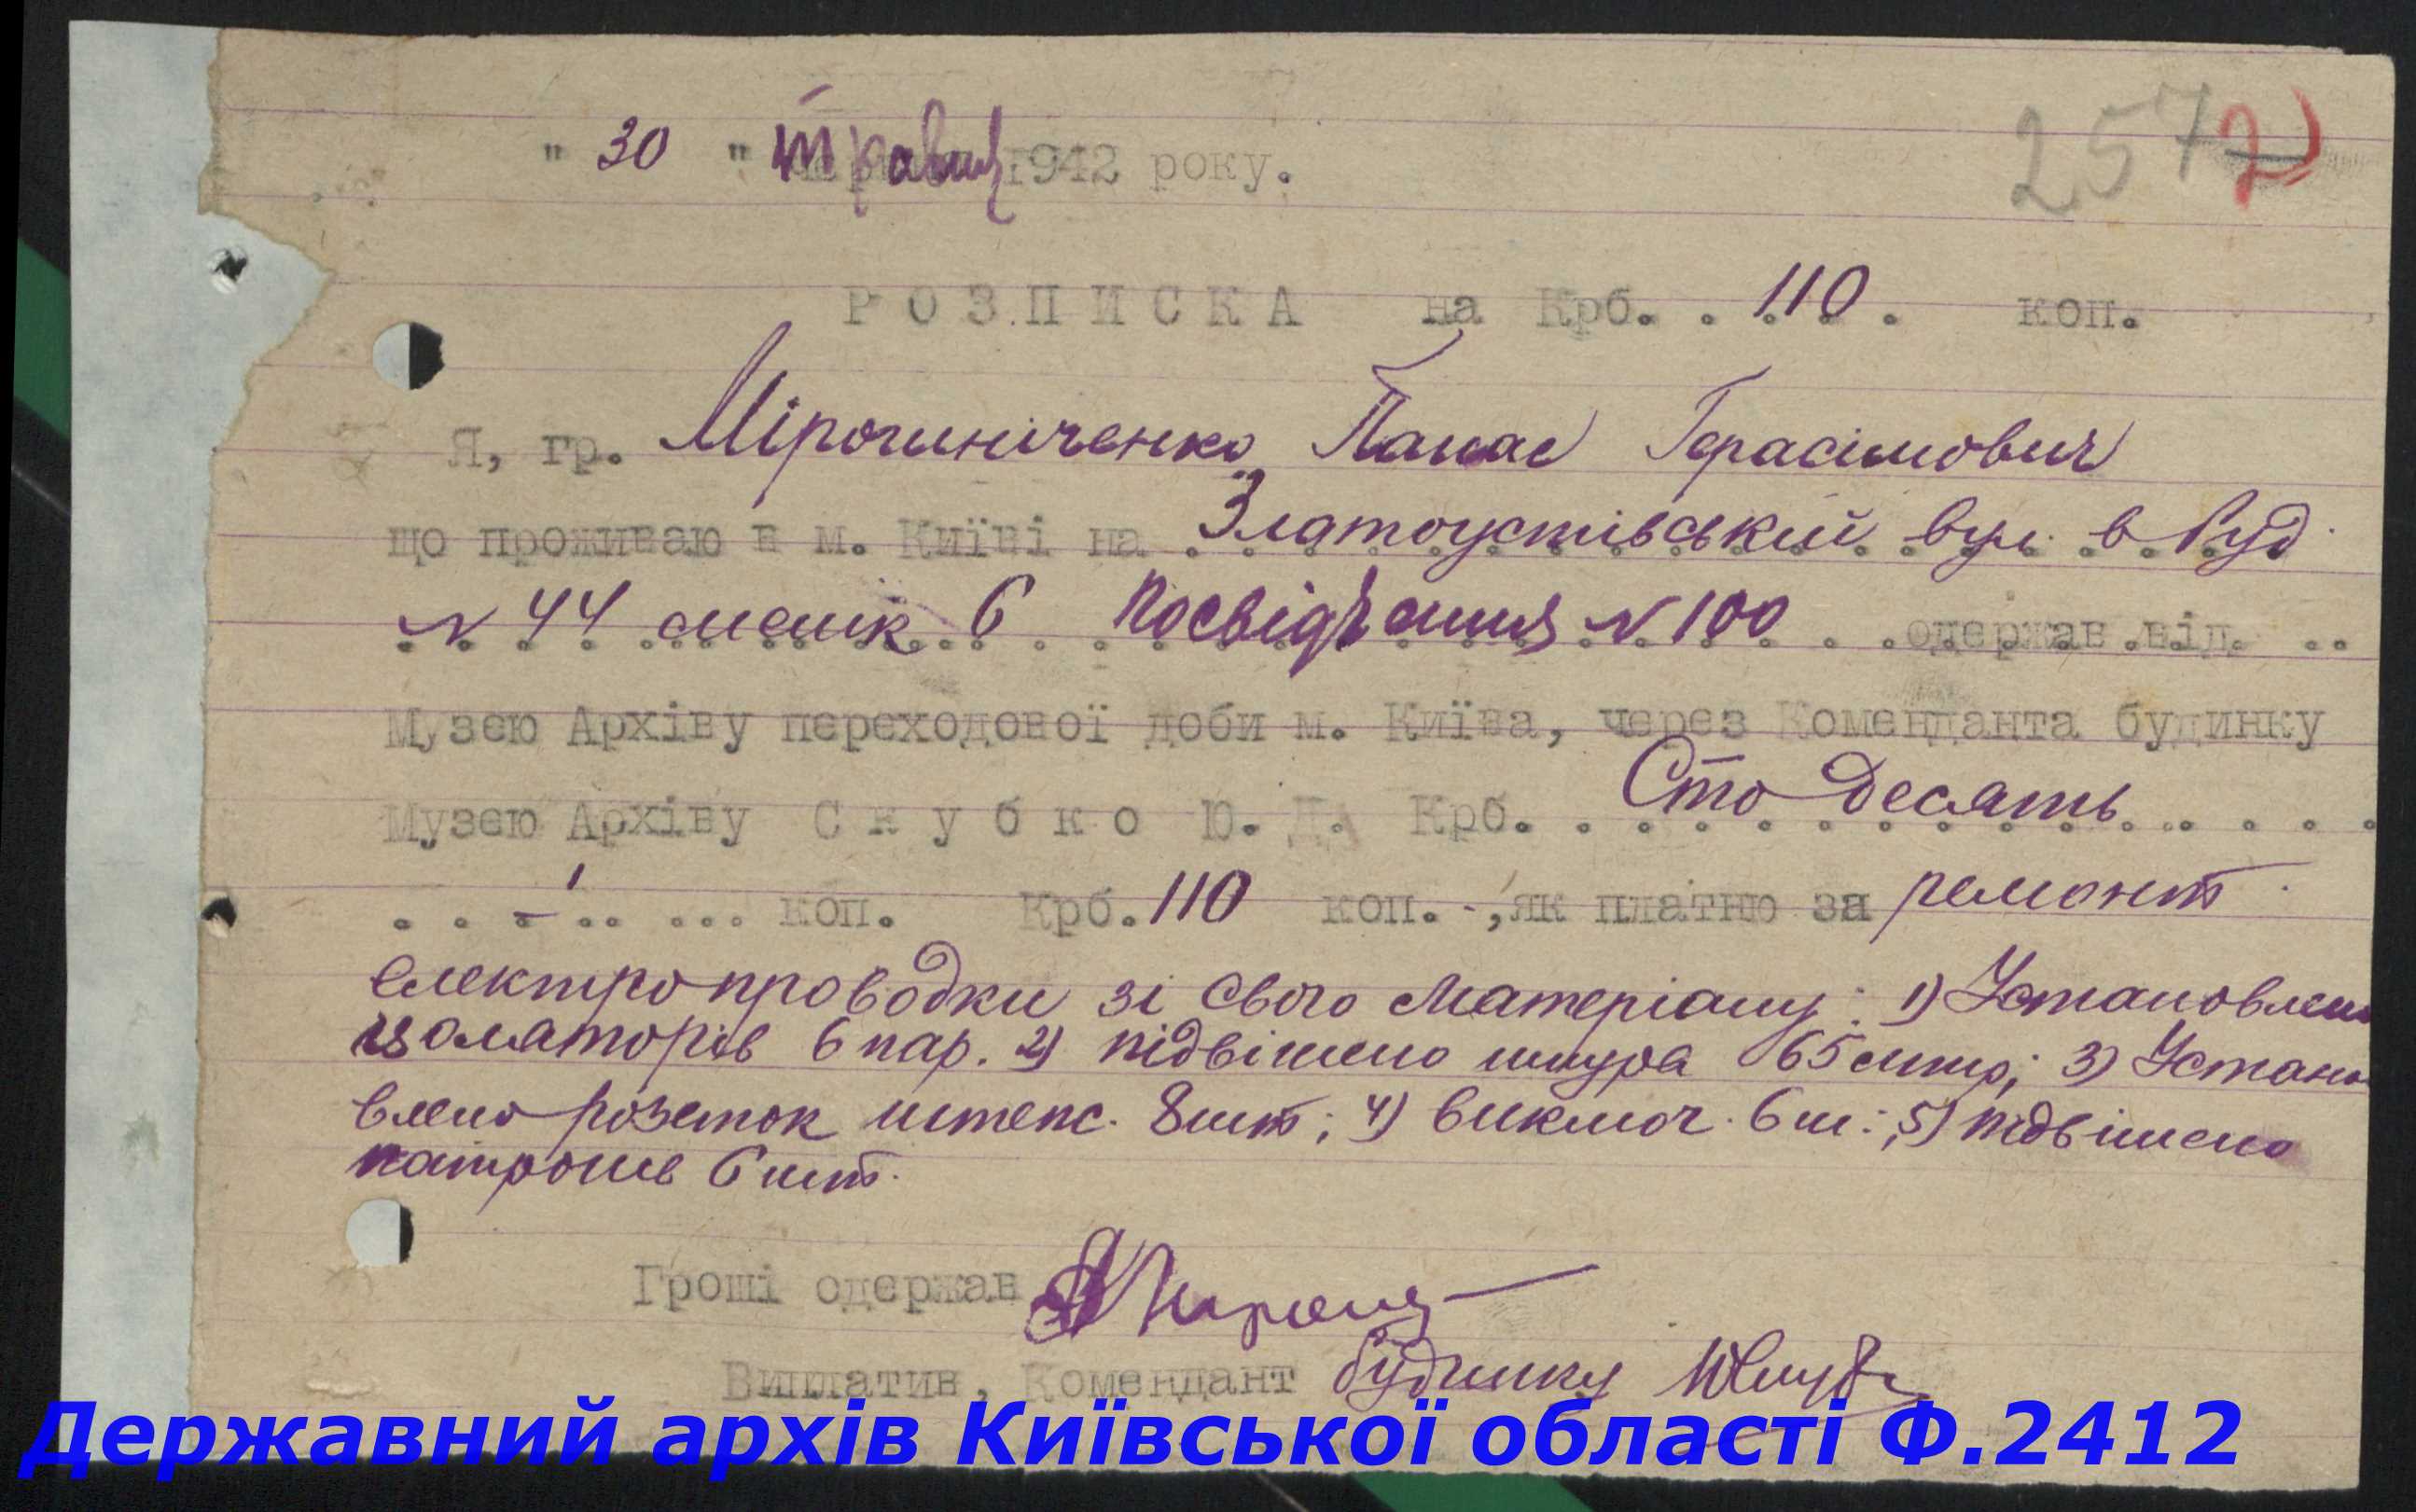 257 2
" 30 " травня 1942 року.
РОЗПИСКА на Крб. . 110 . коп.
Я, гр. Мірошніченко Панас Герасімович
що проживаю в м. Київі на Златоустівській вул. в буд.
№ 44 помешк. 6 Посвідчення № 100 одержав від
Музею Архіву переходової доби м. Київа, через Коменданта будинку
Музею Архіву Скубко Ю. Д. Крб. Сто десять
. . - . . . . . коп. Крб. 110 коп. -, як платню за ремонт
електропроводки зі свого матеріалу: 1) Установлено
ізоляторів 6 пар. 2) підвішено шнура 65 mtr; 3) Устано-
влено розеток штепс. 8 шт; 4) виключ. 6 ш.; 5) підвішено
патронів 6 шт.
Гроші одержав
Виплатив, Комендант будинку
Державний архів Київської області Ф.2412